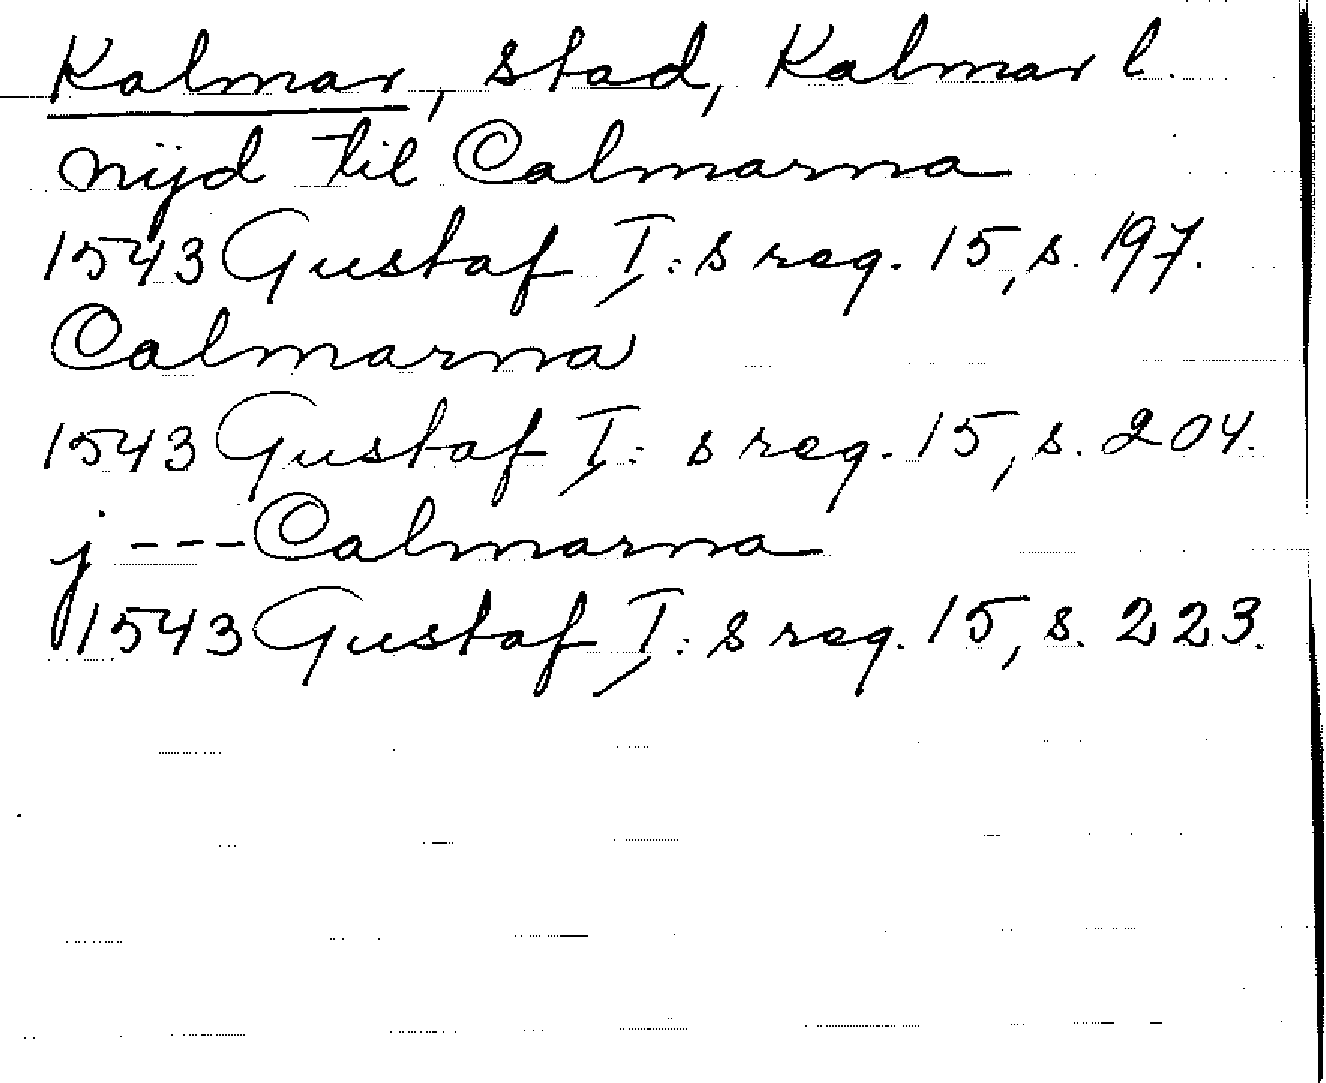 Kalmar, stad, Kalmar l.
nijd til Calmarna
1543 Gustaf I:s reg. 15, s. 197.
Calmarna
1543 Gustaf I:s reg. 15, s. 204.
j --- Calmarna
1543 Gustaf I:s reg. 15, s. 223.